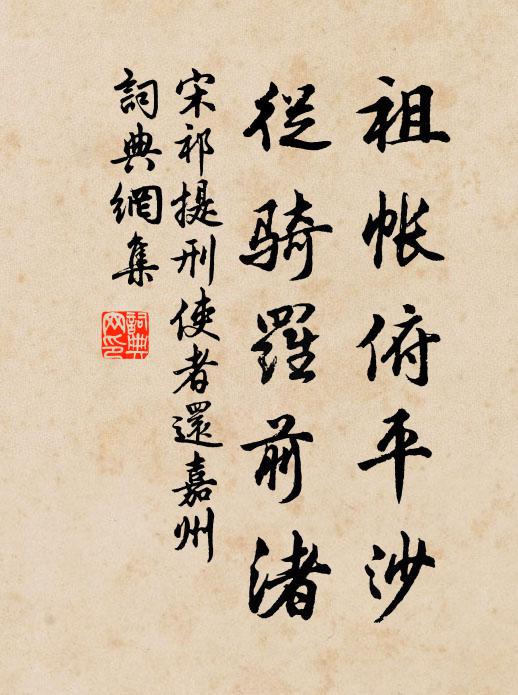 祖帐俯平沙
從骑羅前渚
宋祁提刑使者還嘉州
詞典網集
詞典
网印